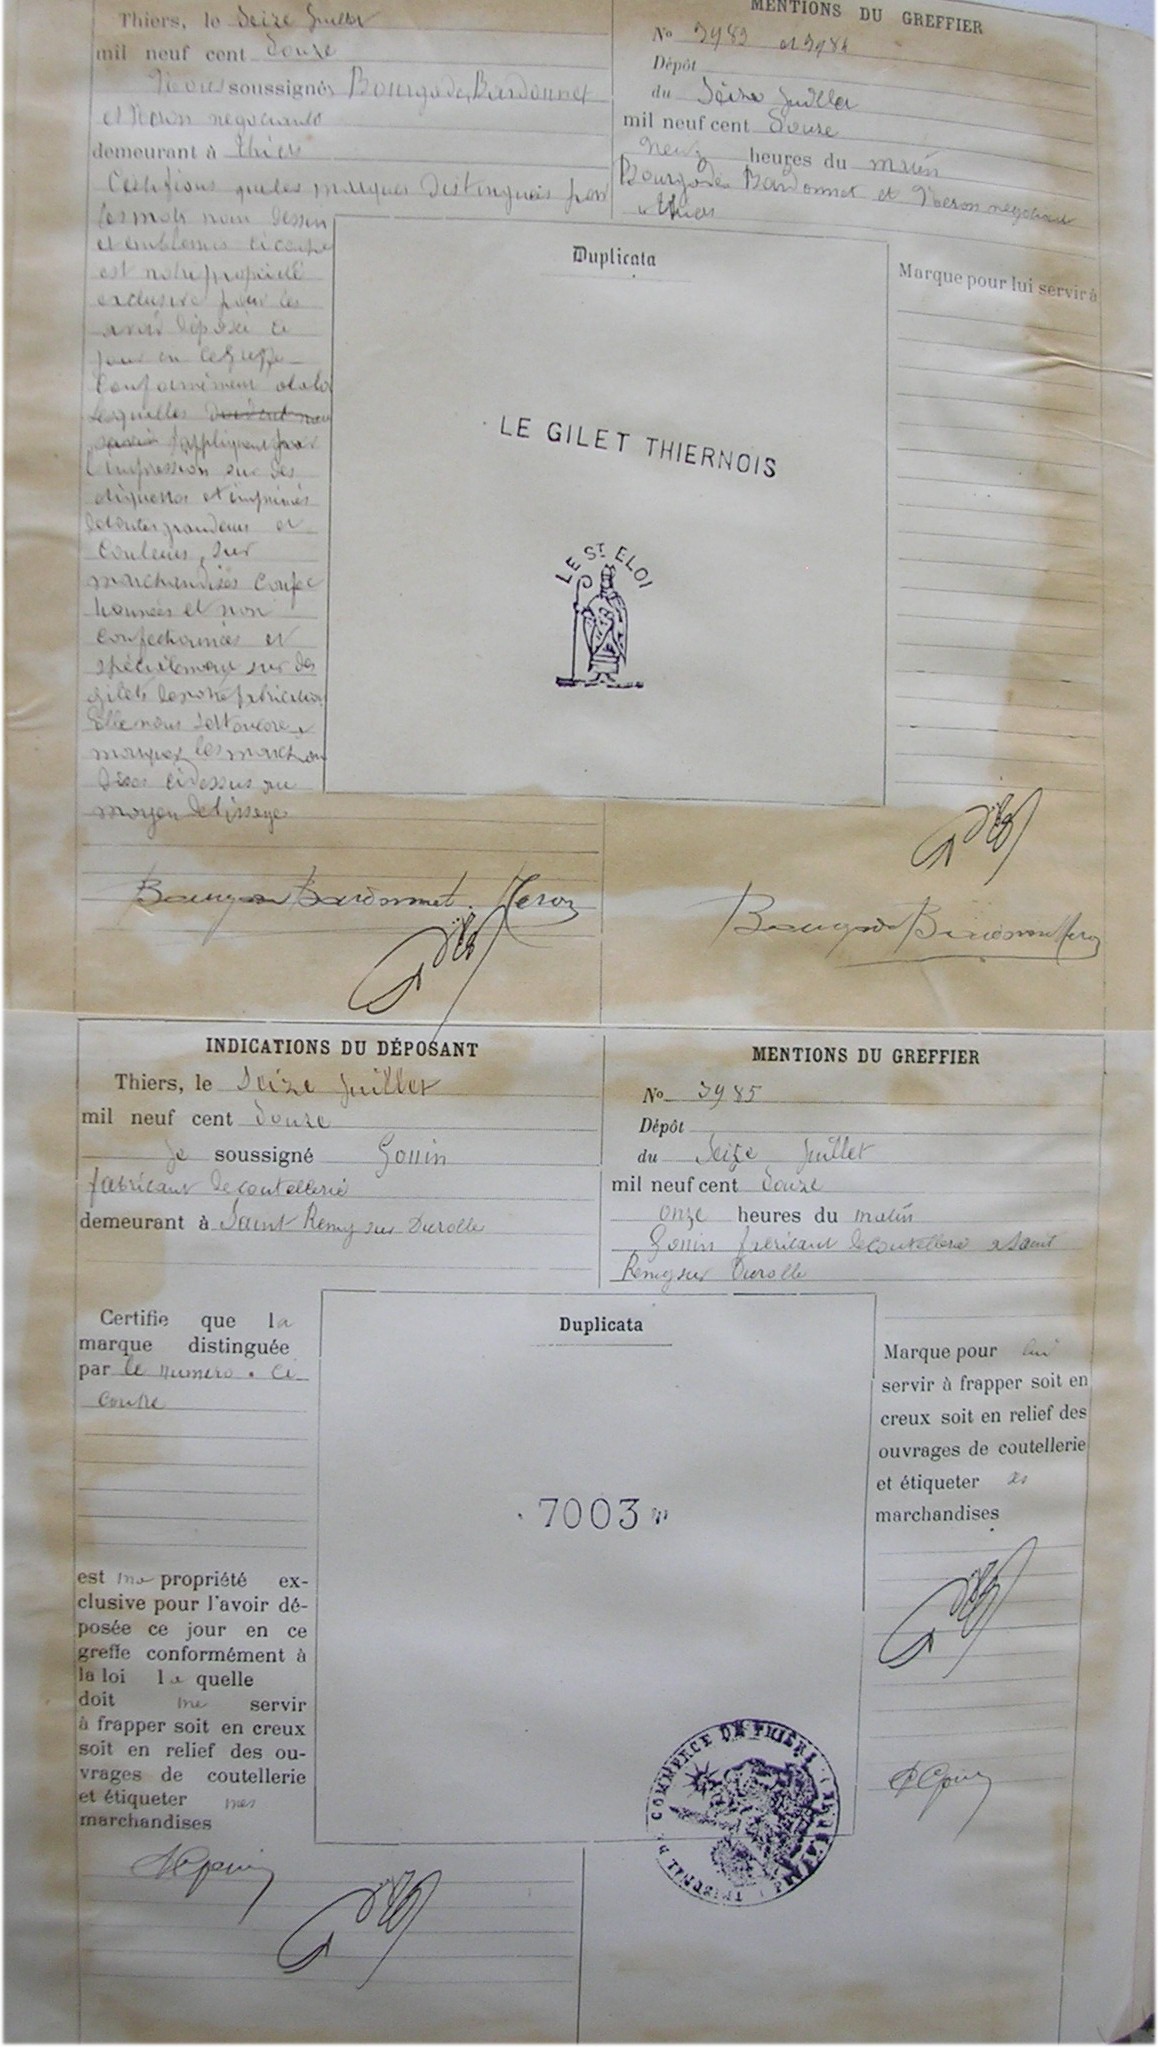 Thiers, le Seize Juillet
mil neuf cent Douze
Nous soussignés Bourgade, Bardonnet
et Neron negociants
demeurant à Thiers
Certifions que les marques Distinguées par
les mots nom dessin
et emblemes ci contre
est notre propriété
exclusive pour les
avoir déposé ce
jour en ce Greffe
Conformément a la loi
lesquelles
s'appliquent par
l'impression sur des
étiquettes et imprimés
de toutes grandeurs et
couleurs, sur
marchandises confec
tionnées et non
confectionnées et
spécialement sur des
gilets de notre fabrication
Elle nous sert encore a
marquer les marchan
dises ci dessus au
moyen de tissage
Bourgade Bardonnet. Neron
MENTIONS DU GREFFIER
No 3983 et 3984
Dépôt
du Seize Juillet
mil neuf cent Douze
Neuf heures du matin
Bourgade Bardonnet et Neron negociants
a Thiers
Duplicata
LE GILET THIERNOIS
LE ST ELOI
Marque pour lui servir à
Bourgade Bardonnet Neron
INDICATIONS DU DÉPOSANT
Thiers, le Seize Juillet
mil neuf cent Douze
Je soussigné Gouin
fabricant de coutellerie
demeurant à Saint Remy sur Durolle
MENTIONS DU GREFFIER
No 3985
Dépôt
du Seize Juillet
mil neuf cent Douze
onze heures du matin
Gouin fabricant de coutellerie a Saint
Remy sur Durolle
Certifie que la
marque distinguée
par le numero. ci
contre
est ma propriété ex-
clusive pour l'avoir dé-
posée ce jour en ce
greffe conformément à
la loi la quelle
doit me servir
à frapper soit en creux
soit en relief des ou-
vrages de coutellerie
et étiqueter mes
marchandises
Duplicata
7003
TRIBUNAL DE COMMERCE DE THIERS
Marque pour lui
servir à frapper soit en
creux soit en relief des
ouvrages de coutellerie
et étiqueter ses
marchandises